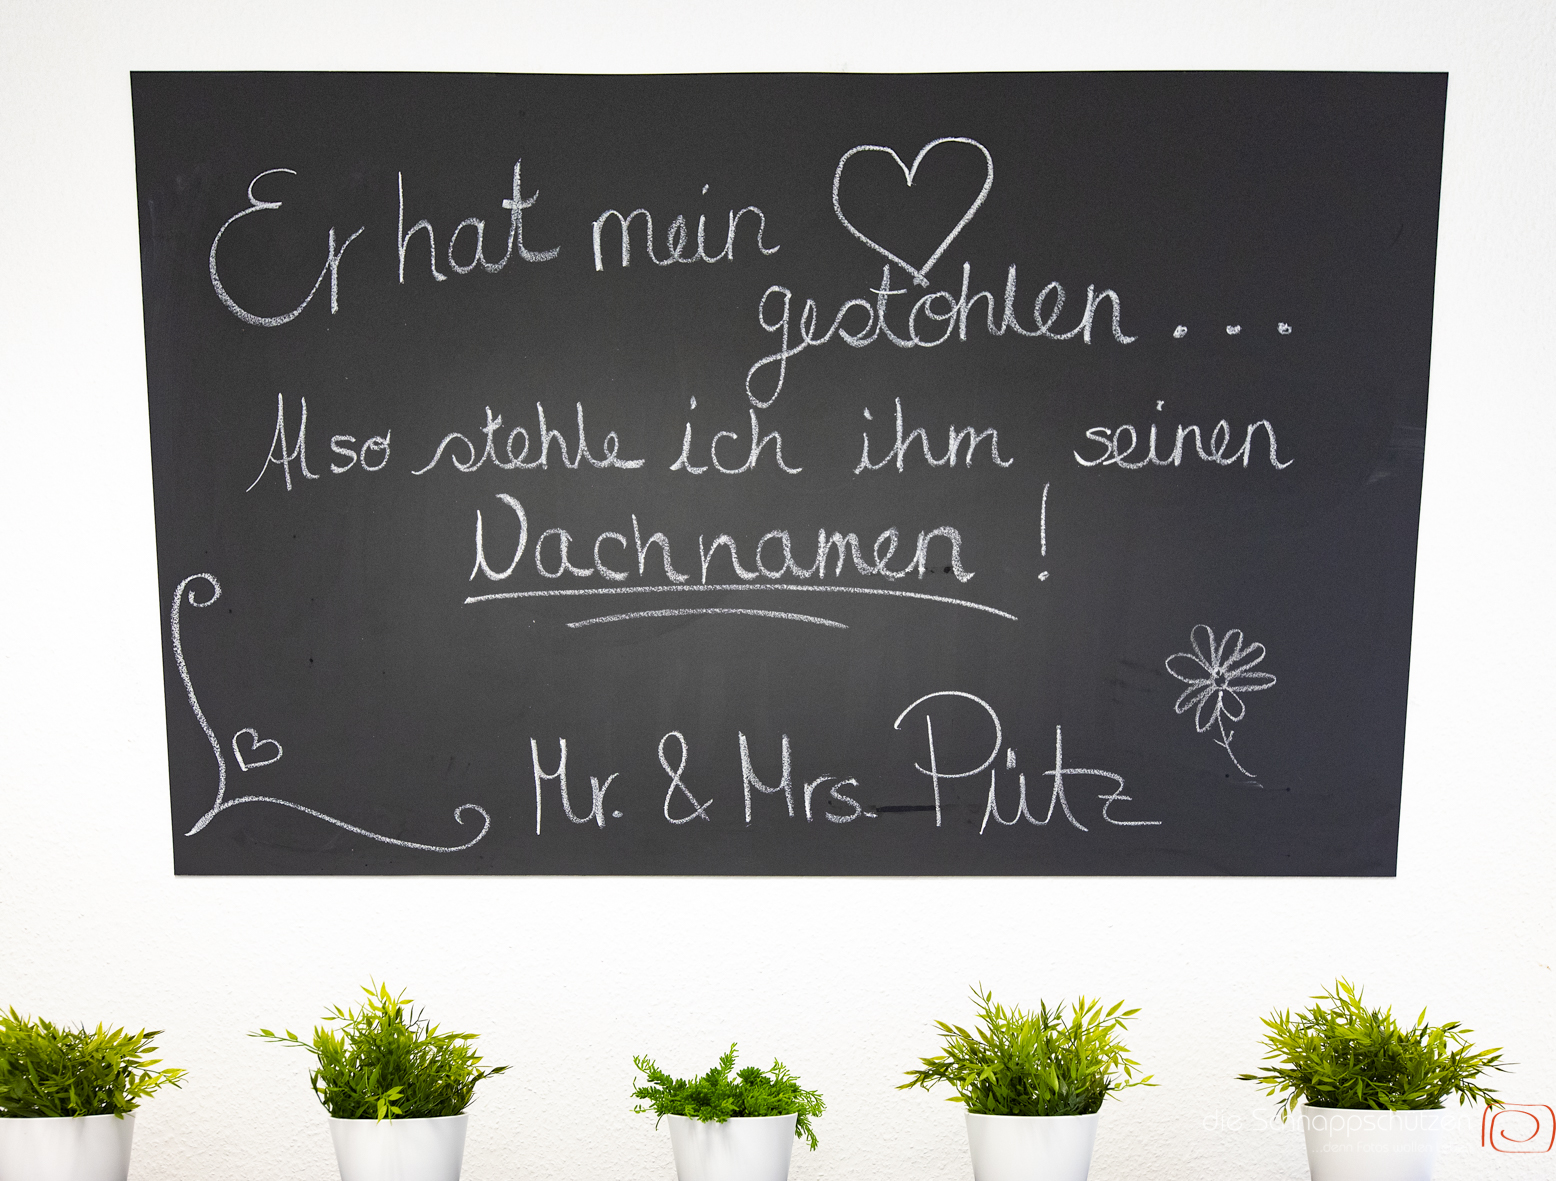 Er hat mein
gestohlen...
Also stehle ich ihm seinen
Nachnamen!
Mr. & Mrs. Pütz
die Schnappschützen